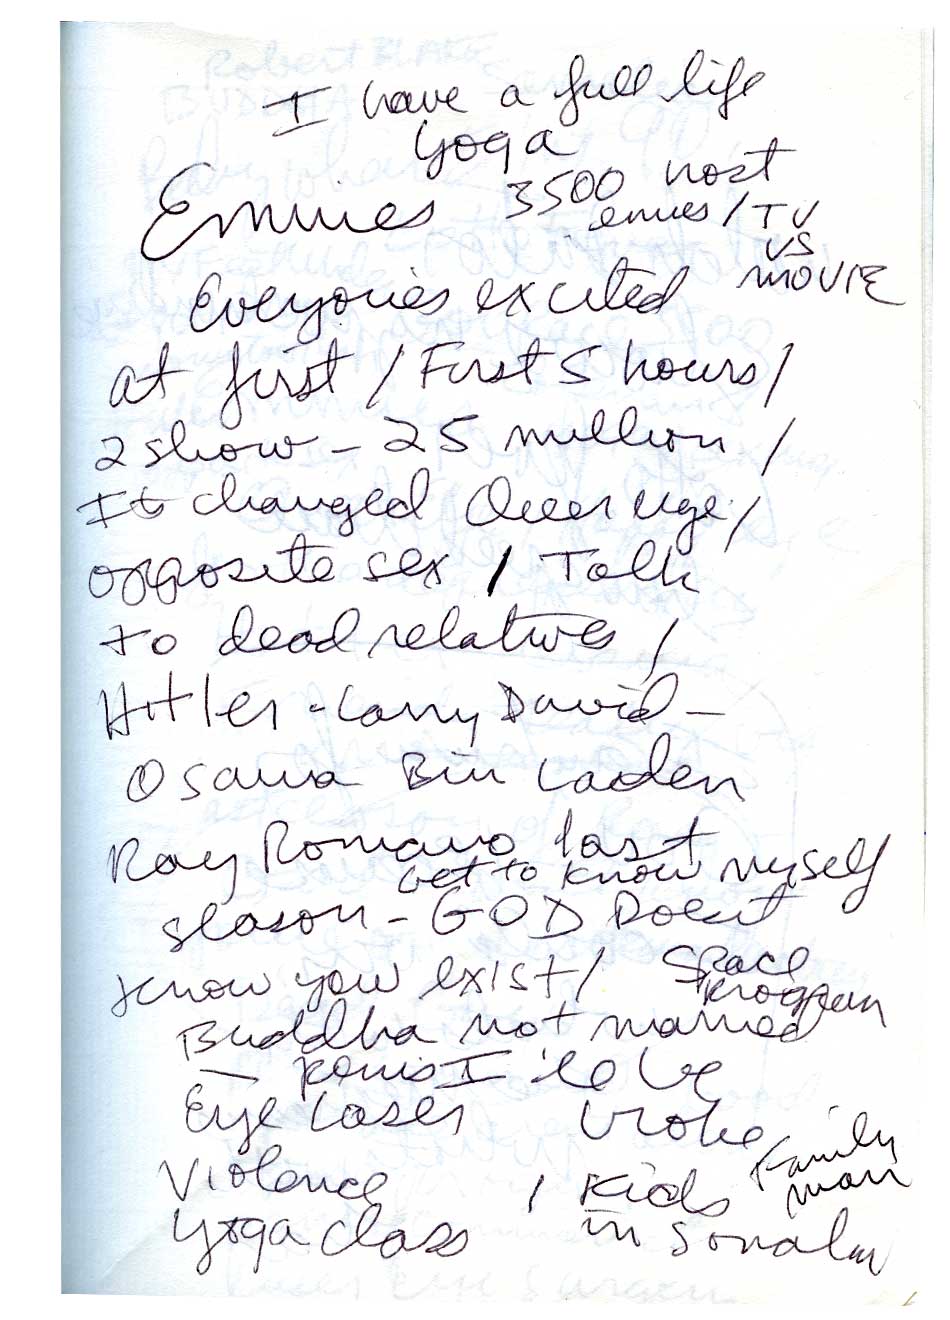 I have a full life
yoga
Emmies 3500 host
emmies / TV
vs
MOVIE
Everyones excited
at first / First 5 hours /
2 show - 25 million /
It changed Over age /
opposite sex / Talk
to dead relatives /
Hitler - Larry David -
Osama Bin Laden
Ray Romano last
Get to know myself
season - GOD Doesnt
know you exist / Space
Program
Buddha not married
I'le be
Eye Laser broke
Family
man
Violence / Kids
Yoga class in